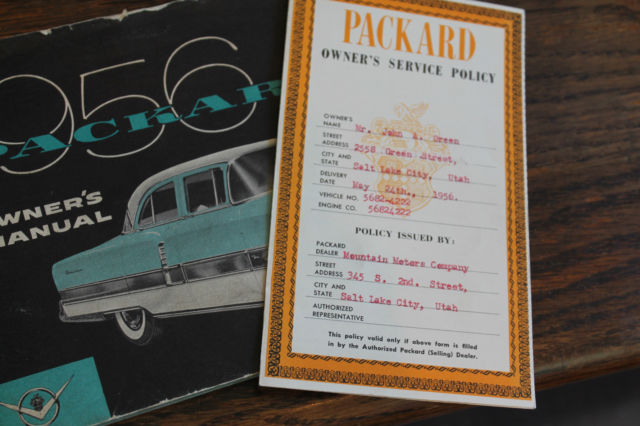 1956
PACKARD
OWNER'S
MANUAL
PACKARD
OWNER'S SERVICE POLICY
OWNER'S
NAME Mr. John A. Green
STREET
ADDRESS 2558 Green Street,
CITY AND
STATE Salt Lake City, Utah
DELIVERY
DATE May 24th., 1956.
VEHICLE NO. 5682-4222
ENGINE CO. 56824222
POLICY ISSUED BY:
PACKARD
DEALER Mountain Motors Company
STREET
ADDRESS 345 S. 2nd. Street,
CITY AND
STATE Salt Lake City, Utah
AUTHORIZED
REPRESENTATIVE
This policy valid only if above form is filled
in by the Authorized Packard (Selling) Dealer.